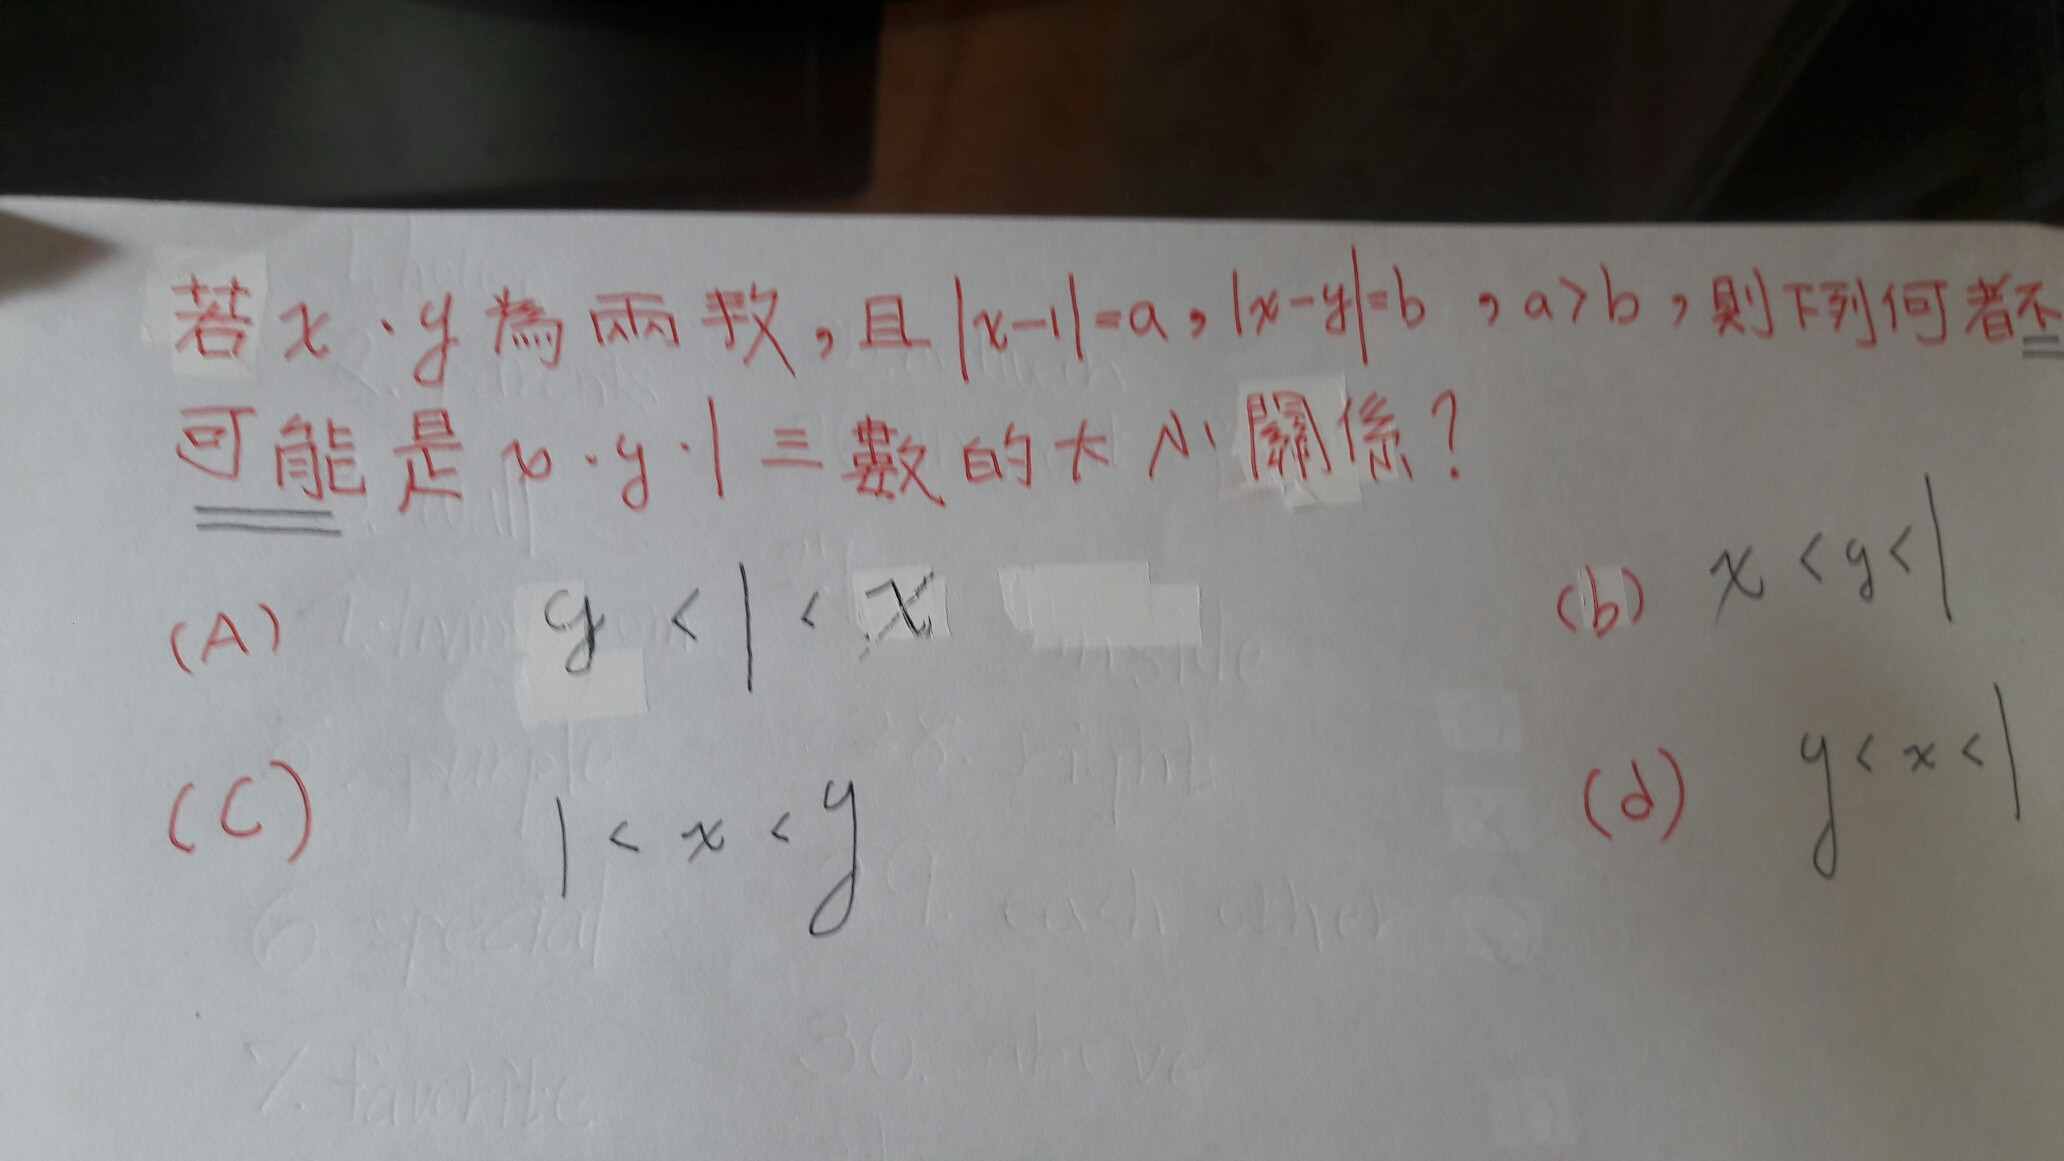 若x、y為兩数，且|x-1|=a，|x-y|=b，a>b，則下列何者不
可能是x、y、1三數的大小關係？
(A) y<1<x (b) x<y<1
(C) 1<x<y (d) y<x<1